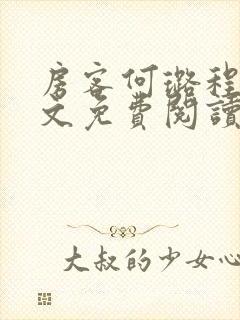 房客何璐程
文免費閱讀
大叔的少女心